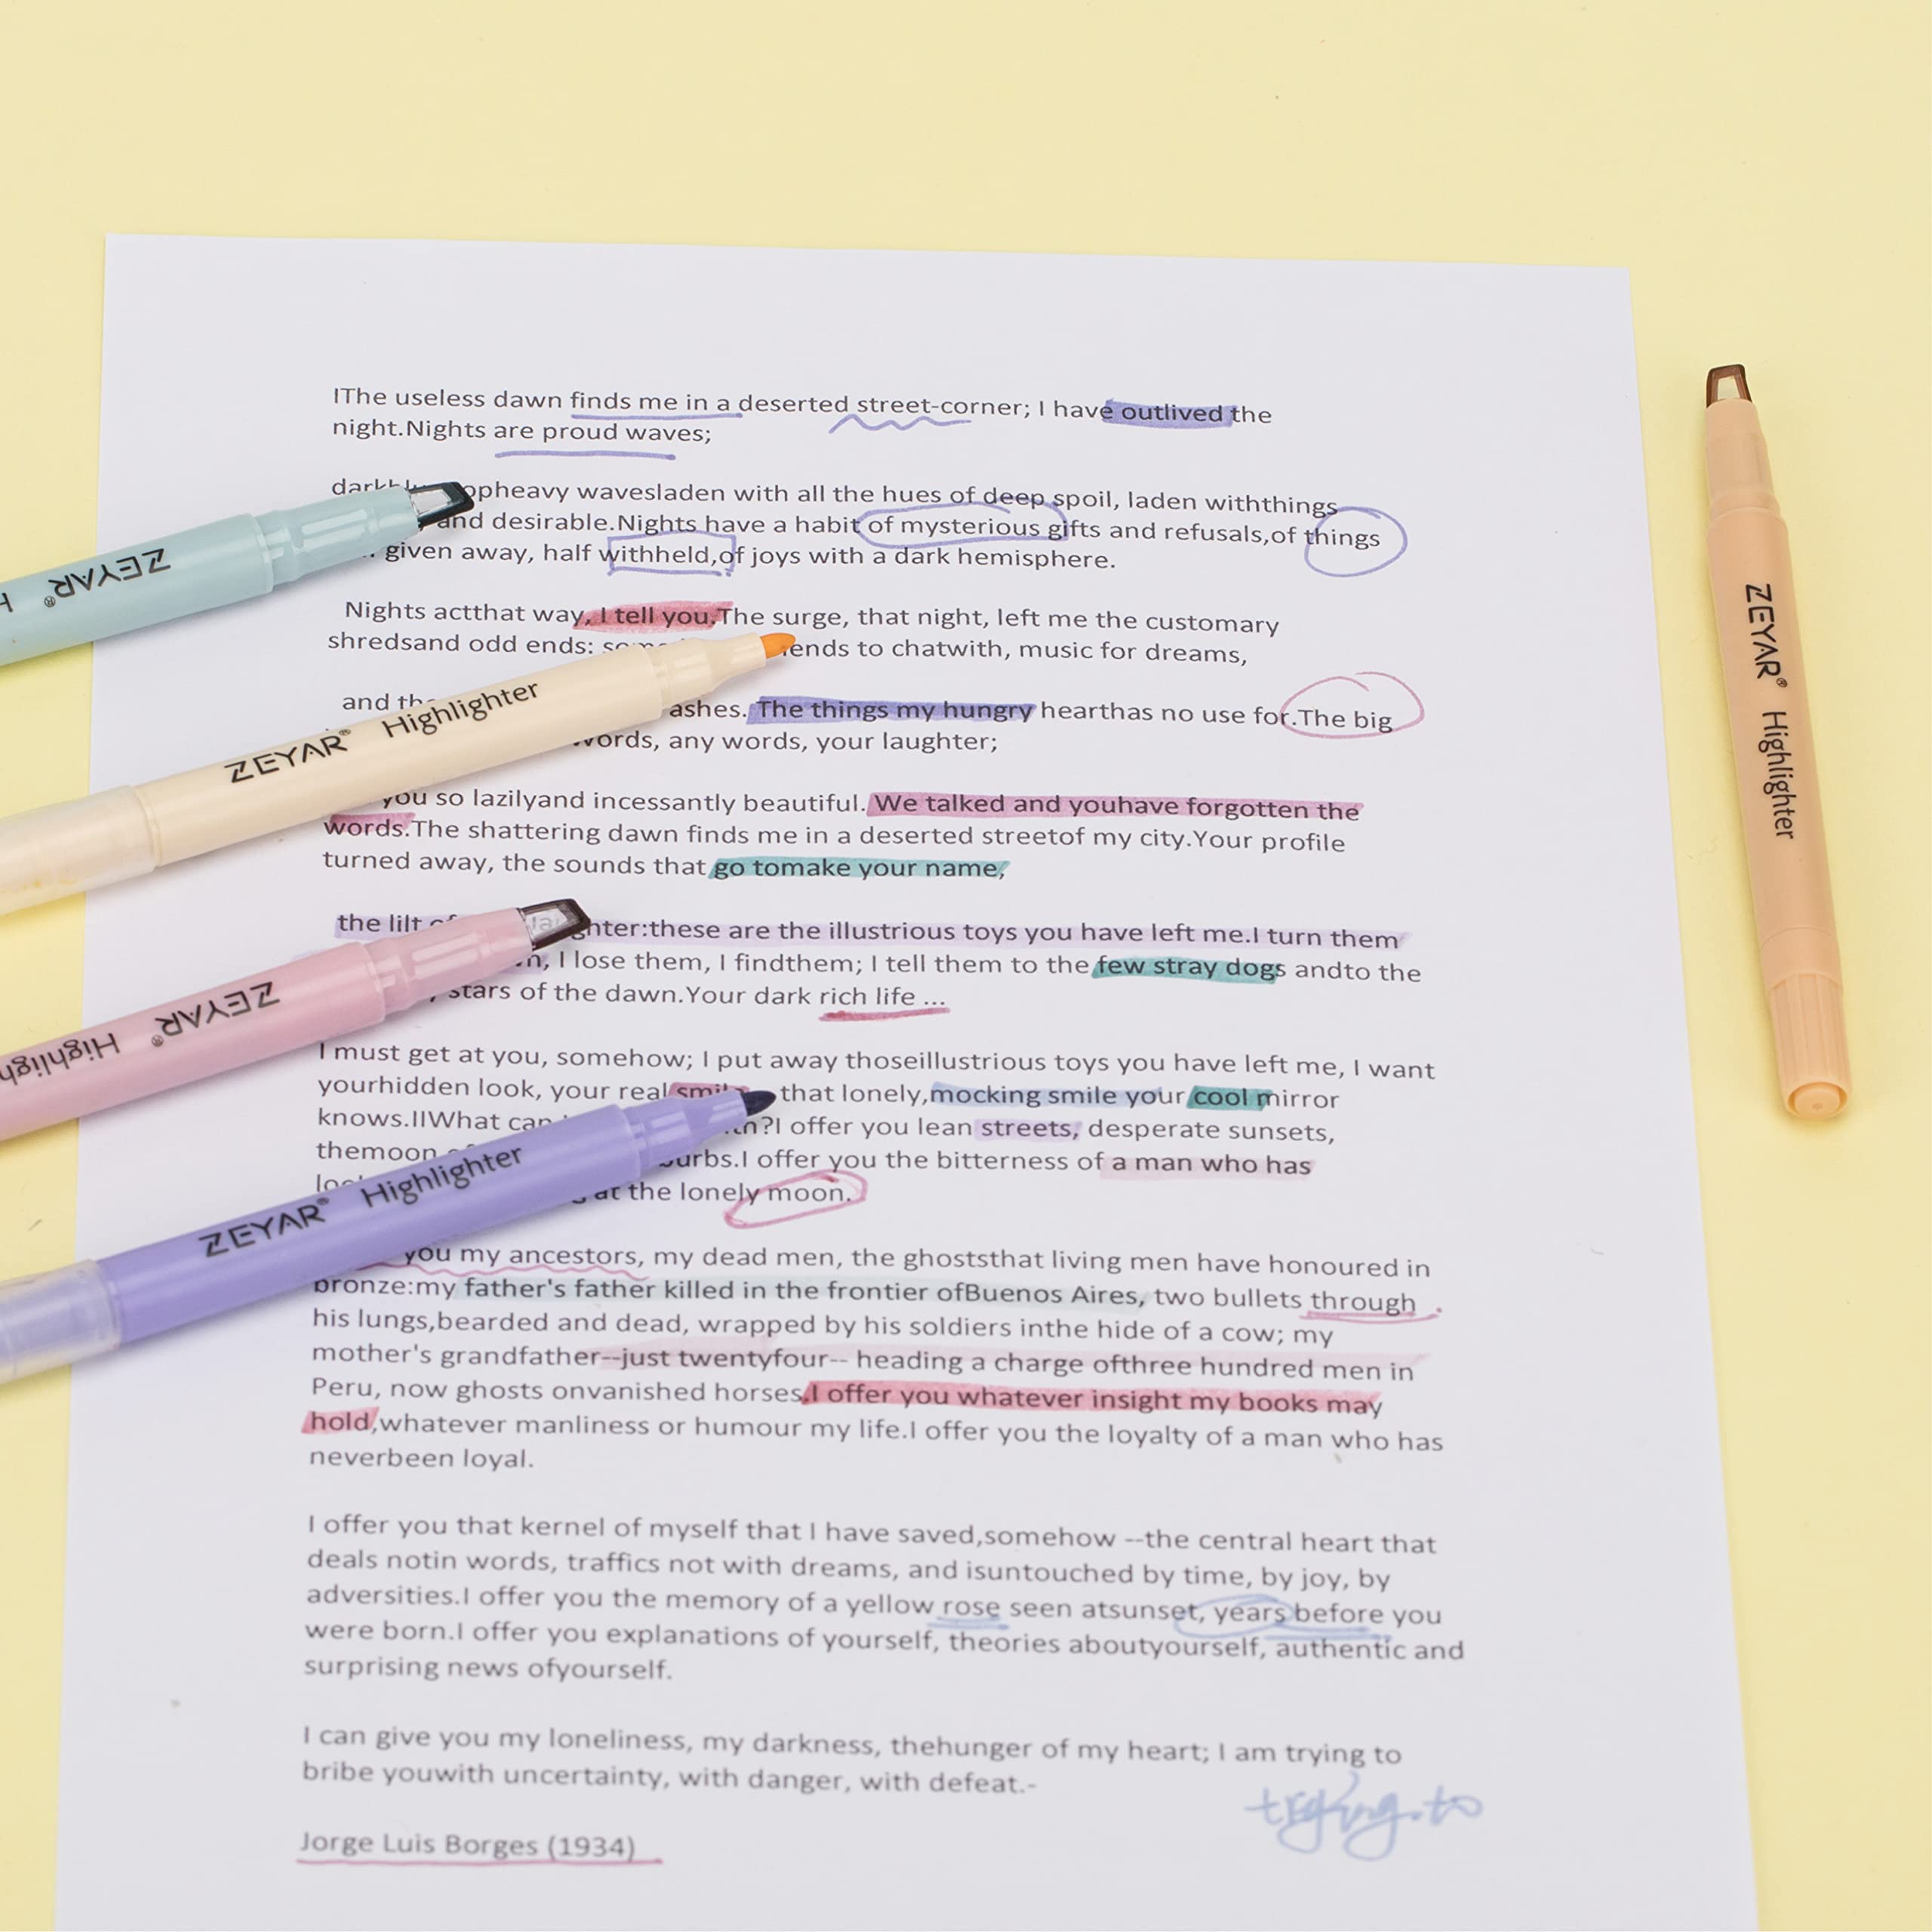 IThe useless dawn finds me in a deserted street-corner; I have outlived the
night.Nights are proud waves;
opheavy wavesladen with all the hues of deep spoil, laden withthings
and desirable.Nights have a habit of mysterious gifts and refusals,of things
given away, half withheld,of joys with a dark hemisphere.
Nights actthat way, I tell you.The surge, that night, left me the customary
shredsand odd ends: ends to chatwith, music for dreams,
and ashes. The things my hungry hearthas no use for.The big
words, any words, your laughter;
you so lazilyand incessantly beautiful. We talked and youhave forgotten the
words.The shattering dawn finds me in a deserted streetof my city.Your profile
turned away, the sounds that go tomake your name,
the lilt ghter:these are the illustrious toys you have left me.I turn them
I lose them, I findthem; I tell them to the few stray dogs andto the
stars of the dawn.Your dark rich life ...
I must get at you, somehow; I put away thoseillustrious toys you have left me, I want
yourhidden look, your real smile that lonely,mocking smile your cool mirror
knows.IIWhat can ?I offer you lean streets, desperate sunsets,
themoon urbs.I offer you the bitterness of a man who has
at the lonely moon.
you my ancestors, my dead men, the ghoststhat living men have honoured in
bronze:my father's father killed in the frontier ofBuenos Aires, two bullets through
his lungs,bearded and dead, wrapped by his soldiers inthe hide of a cow; my
mother's grandfather--just twentyfour-- heading a charge ofthree hundred men in
Peru, now ghosts onvanished horses.I offer you whatever insight my books may
hold,whatever manliness or humour my life.I offer you the loyalty of a man who has
neverbeen loyal.
I offer you that kernel of myself that I have saved,somehow --the central heart that
deals notin words, traffics not with dreams, and isuntouched by time, by joy, by
adversities.I offer you the memory of a yellow rose seen atsunset, years before you
were born.I offer you explanations of yourself, theories aboutyourself, authentic and
surprising news ofyourself.
I can give you my loneliness, my darkness, thehunger of my heart; I am trying to
bribe youwith uncertainty, with danger, with defeat.-
trying.to
Jorge Luis Borges (1934)
ZEYAR®
ZEYAR® Highlighter
ZEYAR® Highligh
ZEYAR® Highlighter
ZEYAR® Highlighter